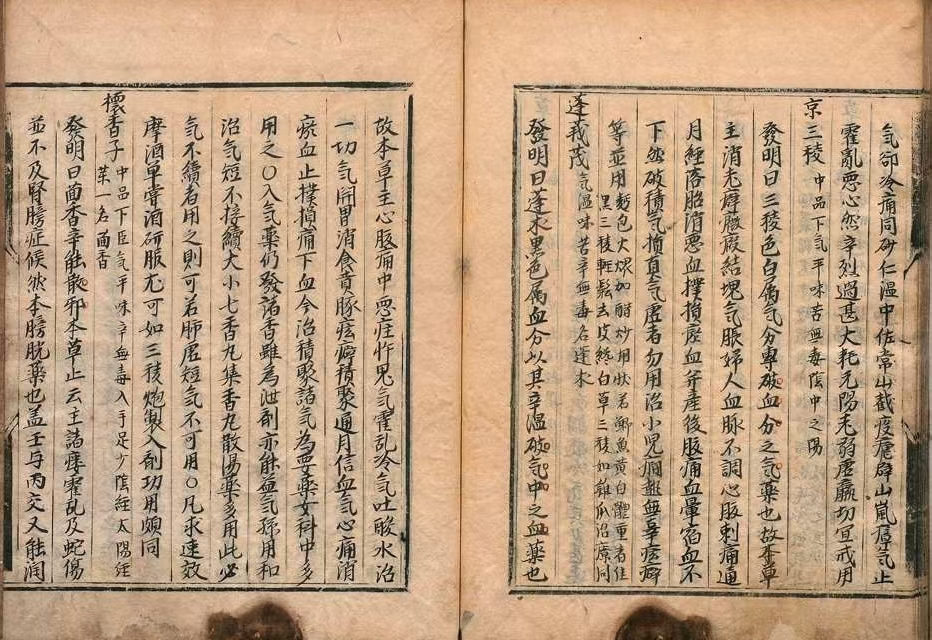 氣卻冷痛同砂仁溫中佐常山截疫瘧辟山嵐瘴气止
霍亂惡心然辛烈過甚大耗元陽老弱虛羸切宜戒用
京三稜中品下气平味苦無毒陰中之陽
發明曰三稜色白属气分專破血分之气藥也故本草
主消老癖癥瘕結塊气脹婦人血脉不調心腹刺痛通
月經落胎消惡血撲損瘀血并產後腹痛血暈宿血不
下然破積气損真气虛者勿用治小児癇𤍠無辜痃癖
等並用麪包火煨加醋炒用狀若鯽魚黃白體重者佳
黑三稜輕鬆去皮終白草三稜如雞爪治療同
蓬莪茂气溫味苦辛無毒名蓬术
發明曰蓬术黑色属血分以其辛溫破气中之血藥也
故本草主心腹痛中惡疰忤鬼气霍乱冷气吐酸水治
一切气開胃消食賁豚痃癖積聚通月信血气心痛消
瘀血止撲損痛下血今治積聚諸气為要藥女科中多
用之〇入气藥仍發諸香雖為泄剤亦能益气孫用和
治气短不接續大小七香丸集香丸散湯藥多用此必
气不續者用之則可若肺虛短气不可用〇凡求速效
摩酒單嘗酒研服尤可如三稜炮製入剤功用頗同
櫰香子中品下臣气平味辛無毒入手足少陰經太陽經
藥一名茴香
發明曰茴香辛能散邪本草止云主諸瘻霍乱及蛇傷
並不及腎膀症候然本膀胱藥也盖壬与丙交又能潤